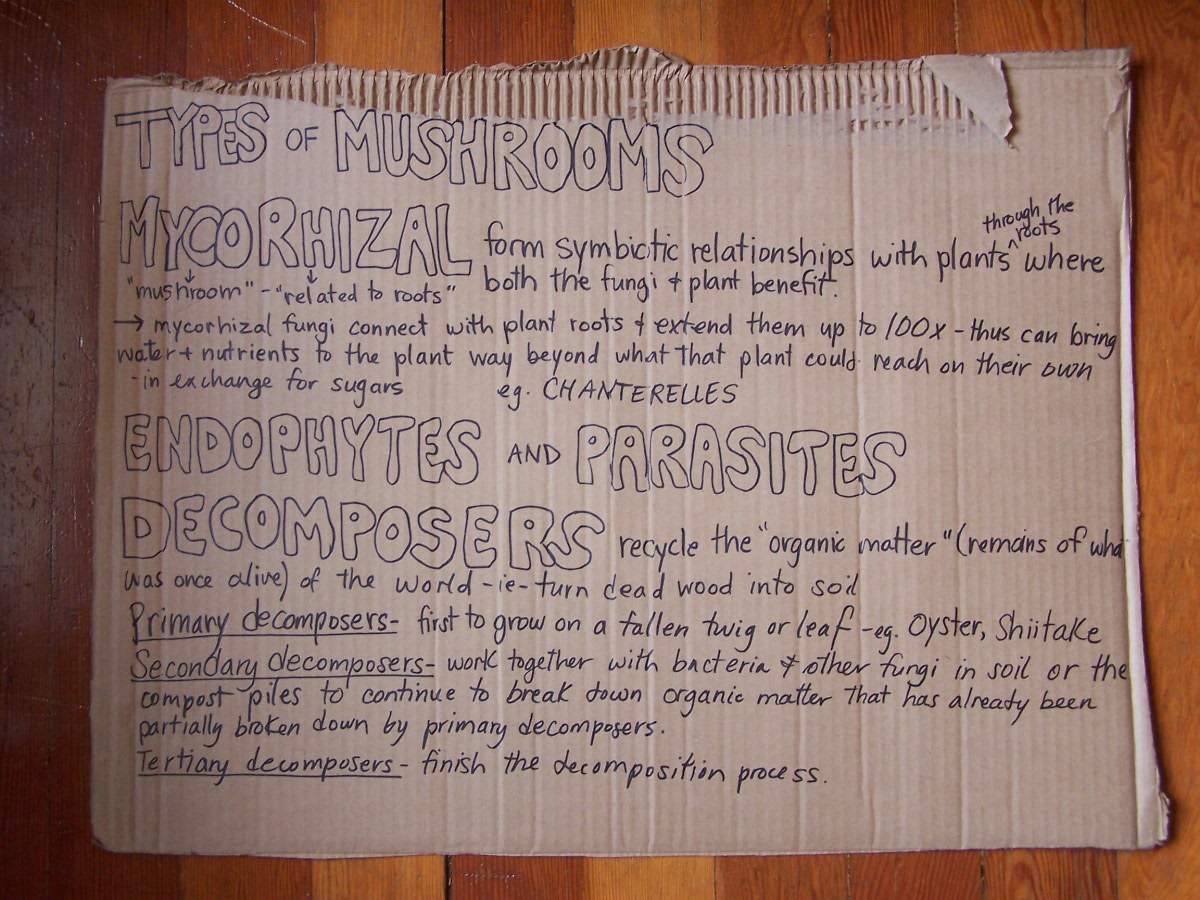 TYPES OF MUSHROOMS
MYCORHIZAL form symbictic relationships with plants ^ through the roots where
"mushroom" - "related to roots" both the fungi & plant benefit.
→ mycorhizal fungi connect with plant roots & extend them up to 100x - thus can bring
water + nutrients to the plant way beyond what that plant could reach on their own
- in exchange for sugars eg. CHANTERELLES
ENDOPHYTES AND PARASITES
DECOMPOSERS recycle the "organic matter" (remains of what
was once alive) of the world - ie - turn dead wood into soil
Primary decomposers - first to grow on a fallen twig or leaf - eg. Oyster, Shiitake
Secondary decomposers - work together with bacteria & other fungi in soil or the
compost piles to continue to break down organic matter that has already been
partially broken down by primary decomposers.
Tertiary decomposers - finish the decomposition process.